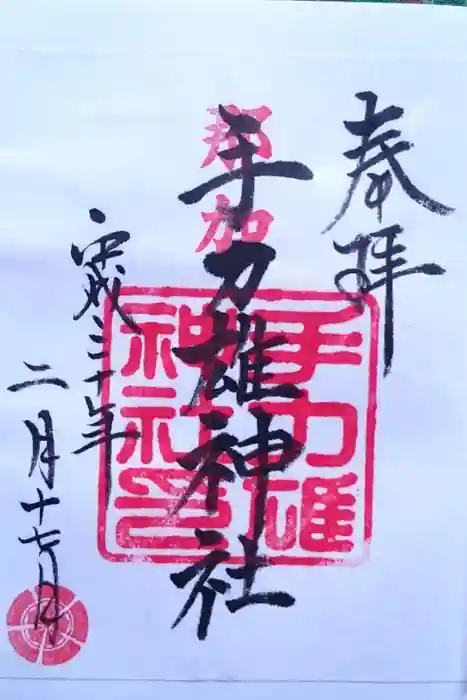 奉拝
那加
手力雄神社
手力雄
神社印
平成三十年
二月十七日